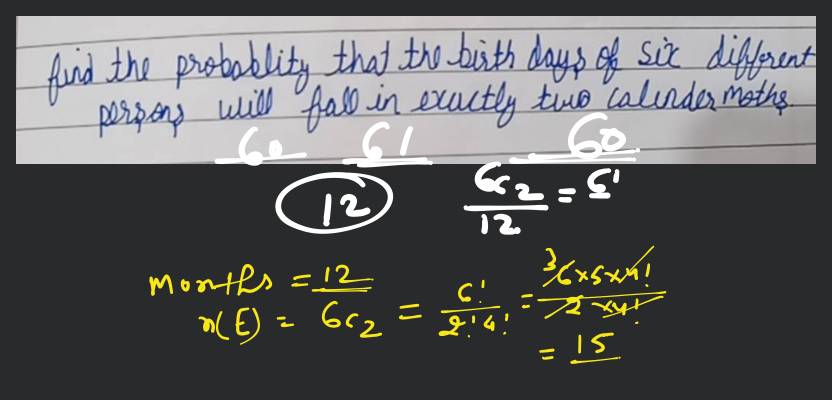 find the probablity that the birth days of six different
persons will fall in exactly two calender moths.
60 61 60
12
6c2/12 = 6!
months = 12
n(E) = 6c2 = 6!/2!4! = 3 6x5x4!/2 x4!
= 15